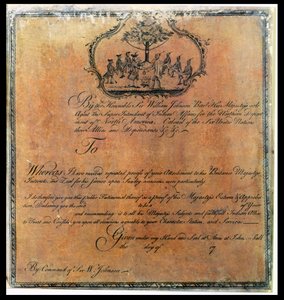 By the Honorable Sir William Johnson Bart. His Majesty's sole
Agent and Super Intendant of Indian Affairs for the Northern Department
of North America, Colonel of the Six United Nations
their Allies and Dependants &c. &c.
To
Whereas I have received repeated proofs of your Attachment to his Britannic Majesty's
Interests, and Zeal for his Service upon Sundry occasions, more particularly
I do therefore give you this public Testimonial thereof as a proof of his Majesty's Esteem & Approbation
Declaring you the said to be a of Your
and recommending it to all his Majesty's Subjects and faithfull Indian Allies
to Treat and Consider you upon all occasions agreeable to your Character, Station, and Services
Given under my Hand and Seal at Arms at Johnson Hall
the day of 17
By Command of Sir W: Johnson